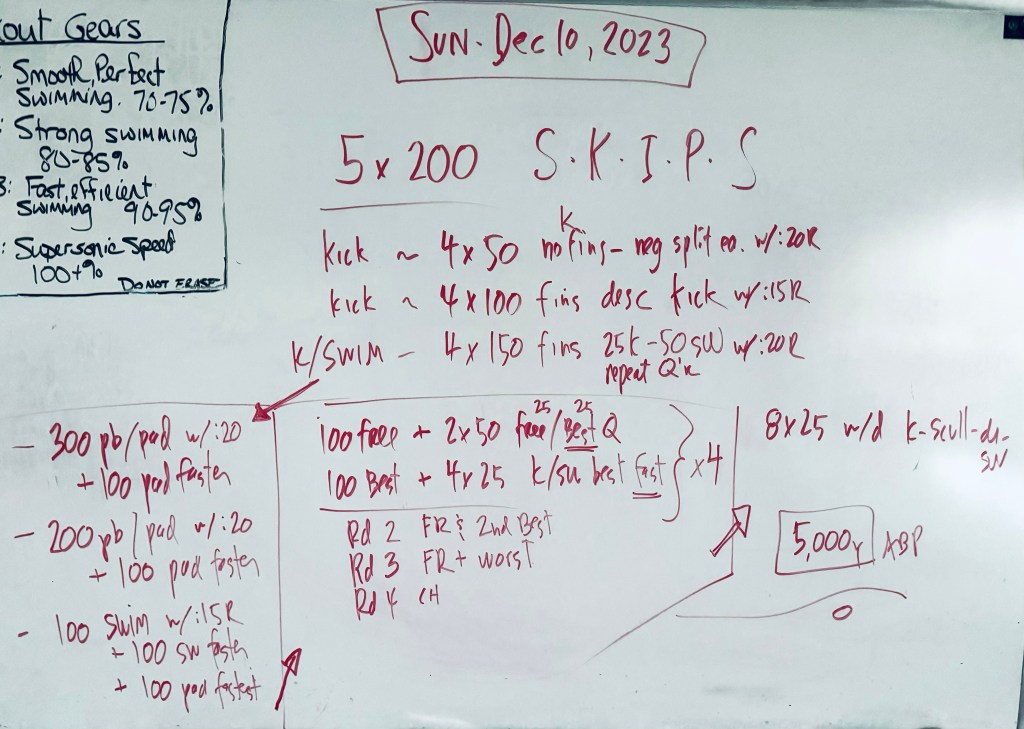 out Gears
Smooth, Perfect
SWIMMING. 70-75%
: Strong SWIMMING
80-85%
3: Fast, efficient
SWIMMING 90-95%
: Supersonic Speed
100+%
DO NOT ERASE
SUN. Dec 10, 2023
5 x 200 S.K.I.P.S
K
kick ~ 4 x 50 no fins - neg split ea. w/:20R
kick ~ 4 x 100 fins desc kick w/:15R
K/SWIM - 4 x 150 fins 25K-50SW w/:20R
repeat
- 300 pb/pad w/:20
+ 100 pad faster
- 200 pb/pad w/:20
+ 100 pad faster
- 100 swim w/:15R
+ 100 sw faster
+ 100 pad fastest
25 25
100 free + 2x50 free/Best Q
100 Best + 4x25 k/sw best fast } x4
Rd 2 FR & 2nd Best
Rd 3 FR + worst
Rd 4 CH
8x25 w/d k-scull-dr-
SW
5,000y ABP